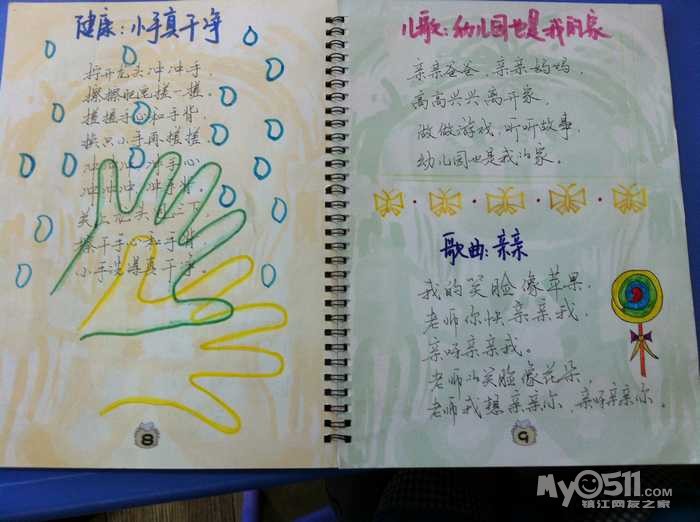 健康:小手真干净
拧开龙头冲冲手,
擦擦肥皂搓一搓,
搓搓手心和手背,
换只小手再搓搓。
冲冲冲,冲手心,
冲冲冲,冲手背。
关上龙头甩一下,
擦干手心和手背,
小手洗得真干净。
8
儿歌:幼儿园也是我的家
亲亲爸爸,亲亲妈妈,
高高兴兴离开家,
做做游戏,听听故事,
幼儿园也是我的家。
歌曲:亲亲
我的笑脸像苹果,
老师你快亲亲我,
亲呀亲亲我。
老师的笑脸像花朵,
老师我想亲亲你,亲呀亲亲你。
9
MyO511.com
镇江网友之家